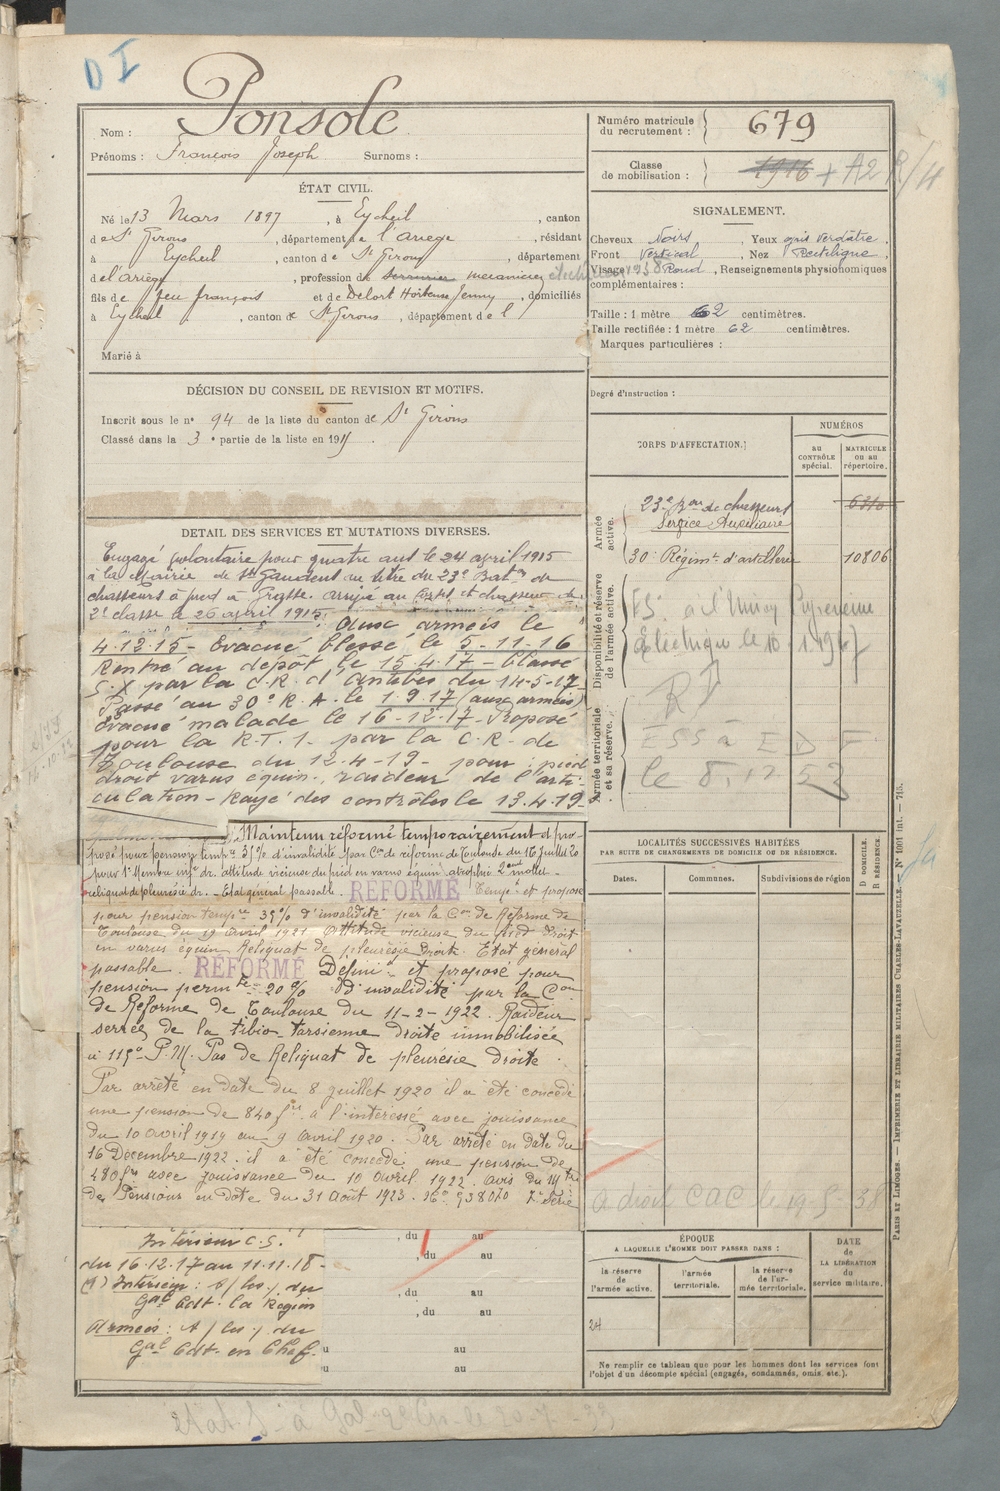 D I
Ponsole
Nom :
Prénoms : François Joseph Surnoms :
ÉTAT CIVIL.
Né le 13 Mars 1897, à Eycheil, canton
de St Girons, département de l'Ariège, résidant
à Eycheil, canton de St Girons, département
de l'Ariège, profession de serrurier mécanicien
fils de feu françois et de Delort Hortense Jenny, domiciliés
à Eycheil, canton de St Girons, département de l'
Marié à
DÉCISION DU CONSEIL DE REVISION ET MOTIFS.
Inscrit sous le n° 94 de la liste du canton de St Girons
Classé dans la 3e partie de la liste en 1915
DETAIL DES SERVICES ET MUTATIONS DIVERSES.
Engagé volontaire pour quatre ans le 24 avril 1915
à la Mairie de St Gaudens au titre du 23e Baton de
chasseurs à pied à Grasse. arrivé au Corps et chasseur de
2e classe le 26 avril 1915. Aux armées le
4.12.15 - Evacué blessé le 5-11-16
Rentré au dépôt le 15.4.17 - Classé
S.X par la C.R. d'Antibes du 14-5-17
Passé au 30e R.A. le 1.9.17 (aux armées)
Evacué malade le 16-12-17 - Proposé
pour la R.T.1. par la C.R. de
Toulouse du 12-4-19 - pour : pied
droit varus équin, raideur de l'arti-
culation - Rayé des contrôles le 13.4.19
Maintenu réformé temporairement et pro-
posé pour pension tempre 35% d'invalidité par Con de réforme de Toulouse du 16 Juillet 20
pour 1° Membre infr dr. attitude vicieuse du pied en varus équin atrophie 2 cent mollet -
reliquat de pleurésie dr. - Etat général passable. RÉFORMÉ Tempre et proposé
pour pension tempre 35% d'invalidité par la Con de Réforme de
Toulouse du 19 avril 1921 Attitude vicieuse du pied droit
en varus équin Reliquat de pleurésie Droite. Etat général
passable. RÉFORMÉ Définif et proposé pour
pension permte 20% d'invalidité par la Con
de Réforme de Toulouse du 11-2-1922. Raideur
serrée de la tibio-tarsienne droite immobilisée
à 115° P.M. Pas de Reliquat de pleurésie droite.
Par arrêté en date du 8 juillet 1920 il a été concédé
une pension de 840 frs à l'intéressé avec jouissance
du 10 avril 1919 au 9 avril 1920. Par arrêté en date du
16 Décembre 1922 il a été concédé une pension de
480 frs avec jouissance du 10 avril 1922. avis du Mtre
des Pensions en date du 31 Août 1923. N° 938070 7e Série
Intérieur C.S.
du 16.12.17 au 11.11.18 -
(1) Intérieur : s/ les / du
Gal Cdt. la Région
Armées : s/ les / du
Gal Cdt. en Chef.
, du au
, du au
, du au
, du au
u au
u au
Numéro matricule
du recrutement : 679
Classe
de mobilisation : 1916 + A2 R/4
SIGNALEMENT.
Cheveux Noirs, Yeux gris verdâtre,
Front Vertical, Nez Rectiligne,
Visage Rond, Renseignements physionomiques
complémentaires :
Taille : 1 mètre 62 centimètres.
Taille rectifiée : 1 mètre 62 centimètres.
Marques particulières :
Degré d'instruction :
CORPS D'AFFECTATION.
NUMÉROS
AU CONTRÔLE spécial.
MATRICULE ou au répertoire.
Armée active.
23e Bon de chasseurs 6310
Service Auxiliaire
30e Régimt d'artillerie 10806
Disponibilité et réserve de l'armée active.
Electrique le 10.1.1947
Armée territoriale et sa réserve.
ESS à EDF
le 8.12.52
LOCALITÉS SUCCESSIVES HABITÉES
PAR SUITE DE CHANGEMENTS DE DOMICILE OU DE RÉSIDENCE.
Dates. Communes. Subdivisions de région
D DOMICILE. R RÉSIDENCE.
a droit CAC le 19-5-38
ÉPOQUE
A LAQUELLE L'HOMME DOIT PASSER DANS :
la réserve de l'armée active.
l'armée territoriale.
la réserve de l'armée territoriale.
DATE
de
LA LIBÉRATION
du
service militaire.
24
Ne remplir ce tableau que pour les hommes dont les services font
l'objet d'un décompte spécial (engagés, condamnés, omis, etc.).
PARIS ET LIMOGES. — IMPRIMERIE ET LIBRAIRIE MILITAIRES CHARLES-LAVAUZELLE. — N° 1001 int. — 715.